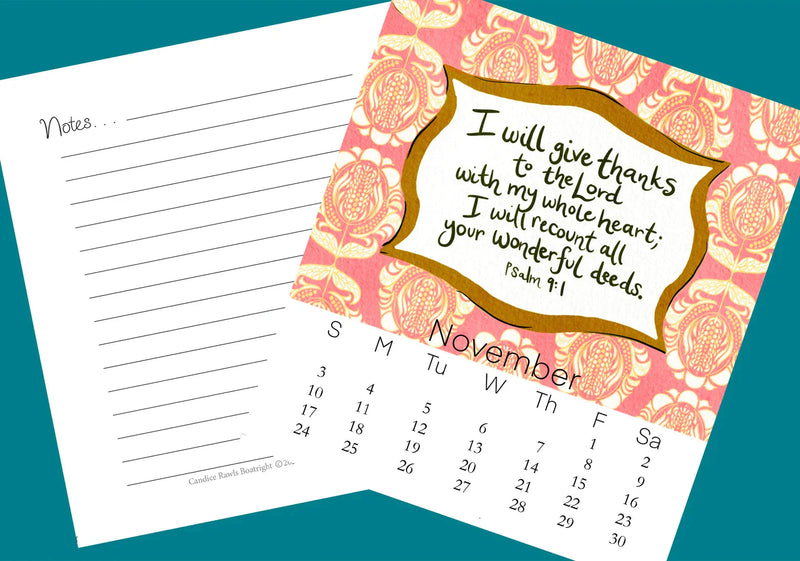 Notes. . .
Candice Rawls Boatright © 20
I will give thanks
to the Lord
with my whole heart;
I will recount all
your wonderful deeds.
Psalm 9:1
November
S M Tu W Th F Sa
1 2
3 4 5 6 7 8 9
10 11 12 13 14 15 16
17 18 19 20 21 22 23
24 25 26 27 28 29 30